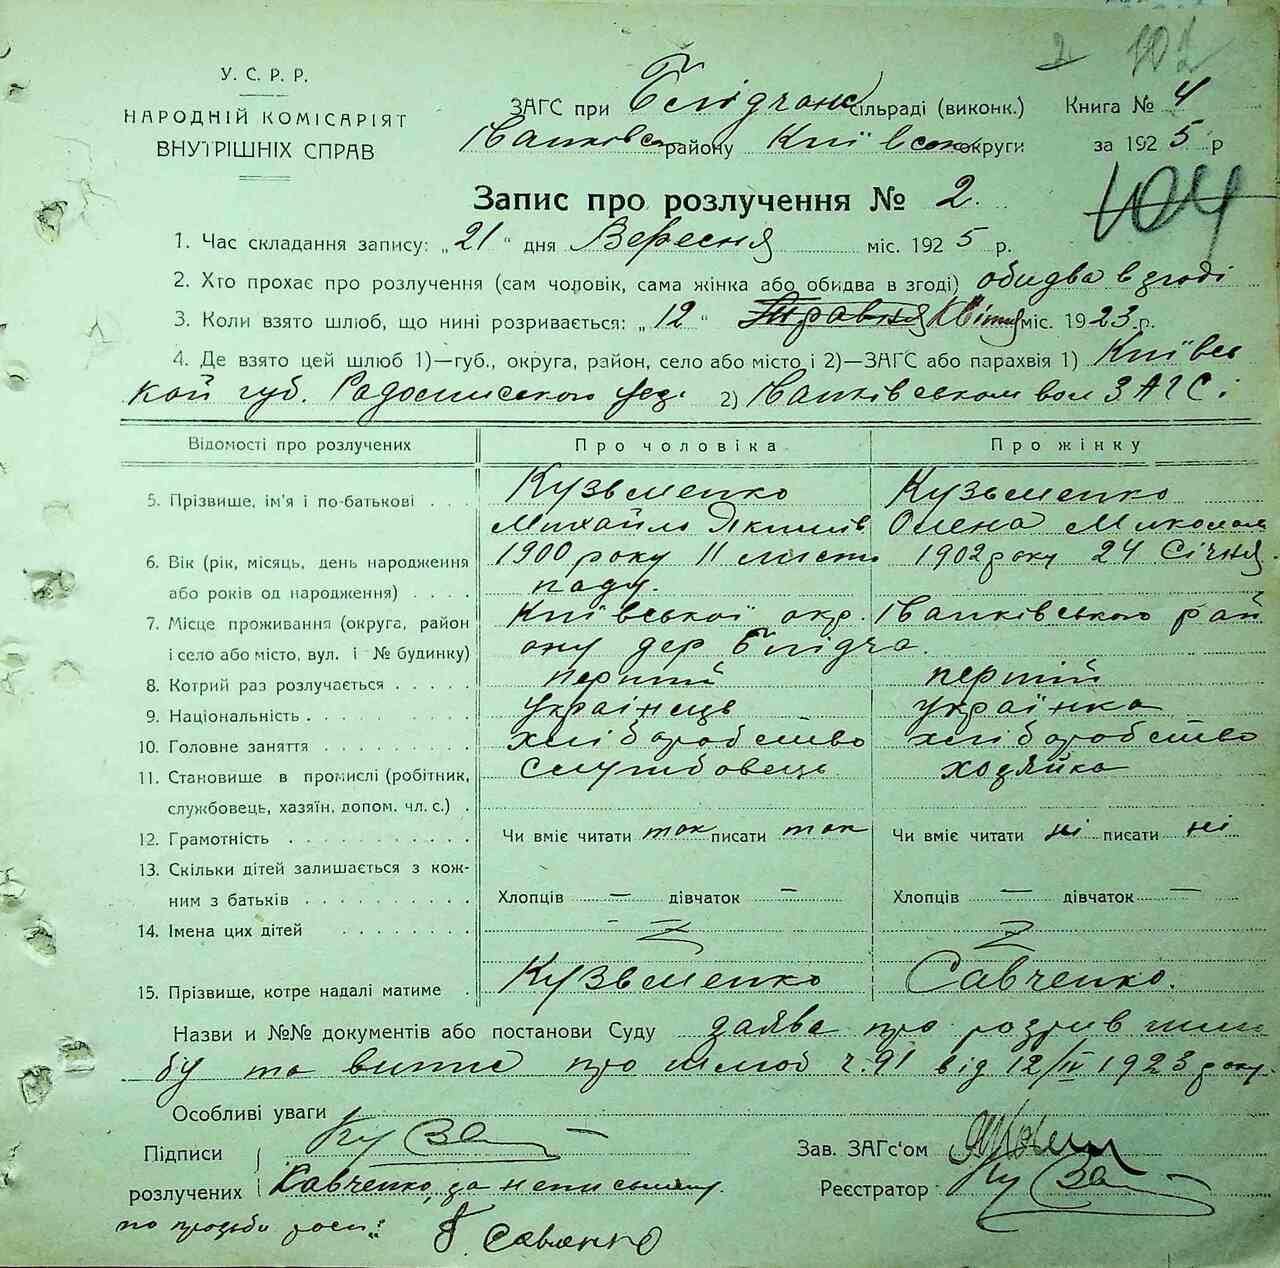 У. С. Р. Р.
НАРОДНІЙ КОМІСАРІЯТ
ВНУТРІШНІХ СПРАВ
ЗАГС при Блідчанс сільраді (виконк.) Книга № 4
Іванківськ району Київськ округи за 1925 р
Запис про розлучення № 2.
104
1. Час складання запису: „21" дня Вересня міс. 1925 р.
2. Хто прохає про розлучення (сам чоловік, сама жінка або обидва в згоді) обидва в згоді
3. Коли взято шлюб, що нині розривається: „12" Травня Квітня міс. 1923 р.
4. Де взято цей шлюб 1)—губ., округа, район, село або місто і 2)—ЗАГС або парахвія 1) Київсь
кой губ. Радомиського уез. 2) Іванківськом вол ЗАГСі
Відомості про розлучених Про чоловіка Про жінку
5. Прізвище, ім'я і по-батькові Кузьменко Кузьменко
Михайло Якимів Олена Микола
6. Вік (рік, місяць, день народження 1900 року 11 листо 1902 року 24 Січня
або років од народження) паду.
7. Місце проживання (округа, район Київської окр. Іванківського рай
і село або місто, вул. і № будинку) ону дер Блідча.
8. Котрий раз розлучається перший перший
9. Національність українець українка
10. Головне заняття хліборобство хліборобство
11. Становище в промислі (робітник, службовець хозяйка
службовець, хазяїн, допом. чл. с.)
12. Грамотність Чи вміє читати так писати так Чи вміє читати ні писати ні
13. Скільки дітей залишається з кож-
ним з батьків Хлопців — дівчаток — Хлопців — дівчаток —
14. Імена цих дітей
15. Прізвище, котре надалі матиме Кузьменко Савченко.
Назви и №№ документів або постанови Суду заява про розрив шлю
бу та витяг про шлюб ч. 91 від 12/IV 1923 року.
Особливі уваги
Підписи Зав. ЗАГс'ом
розлучених Савченко, за неписьмену Реєстратор
по прозьби роспи:
Савченко